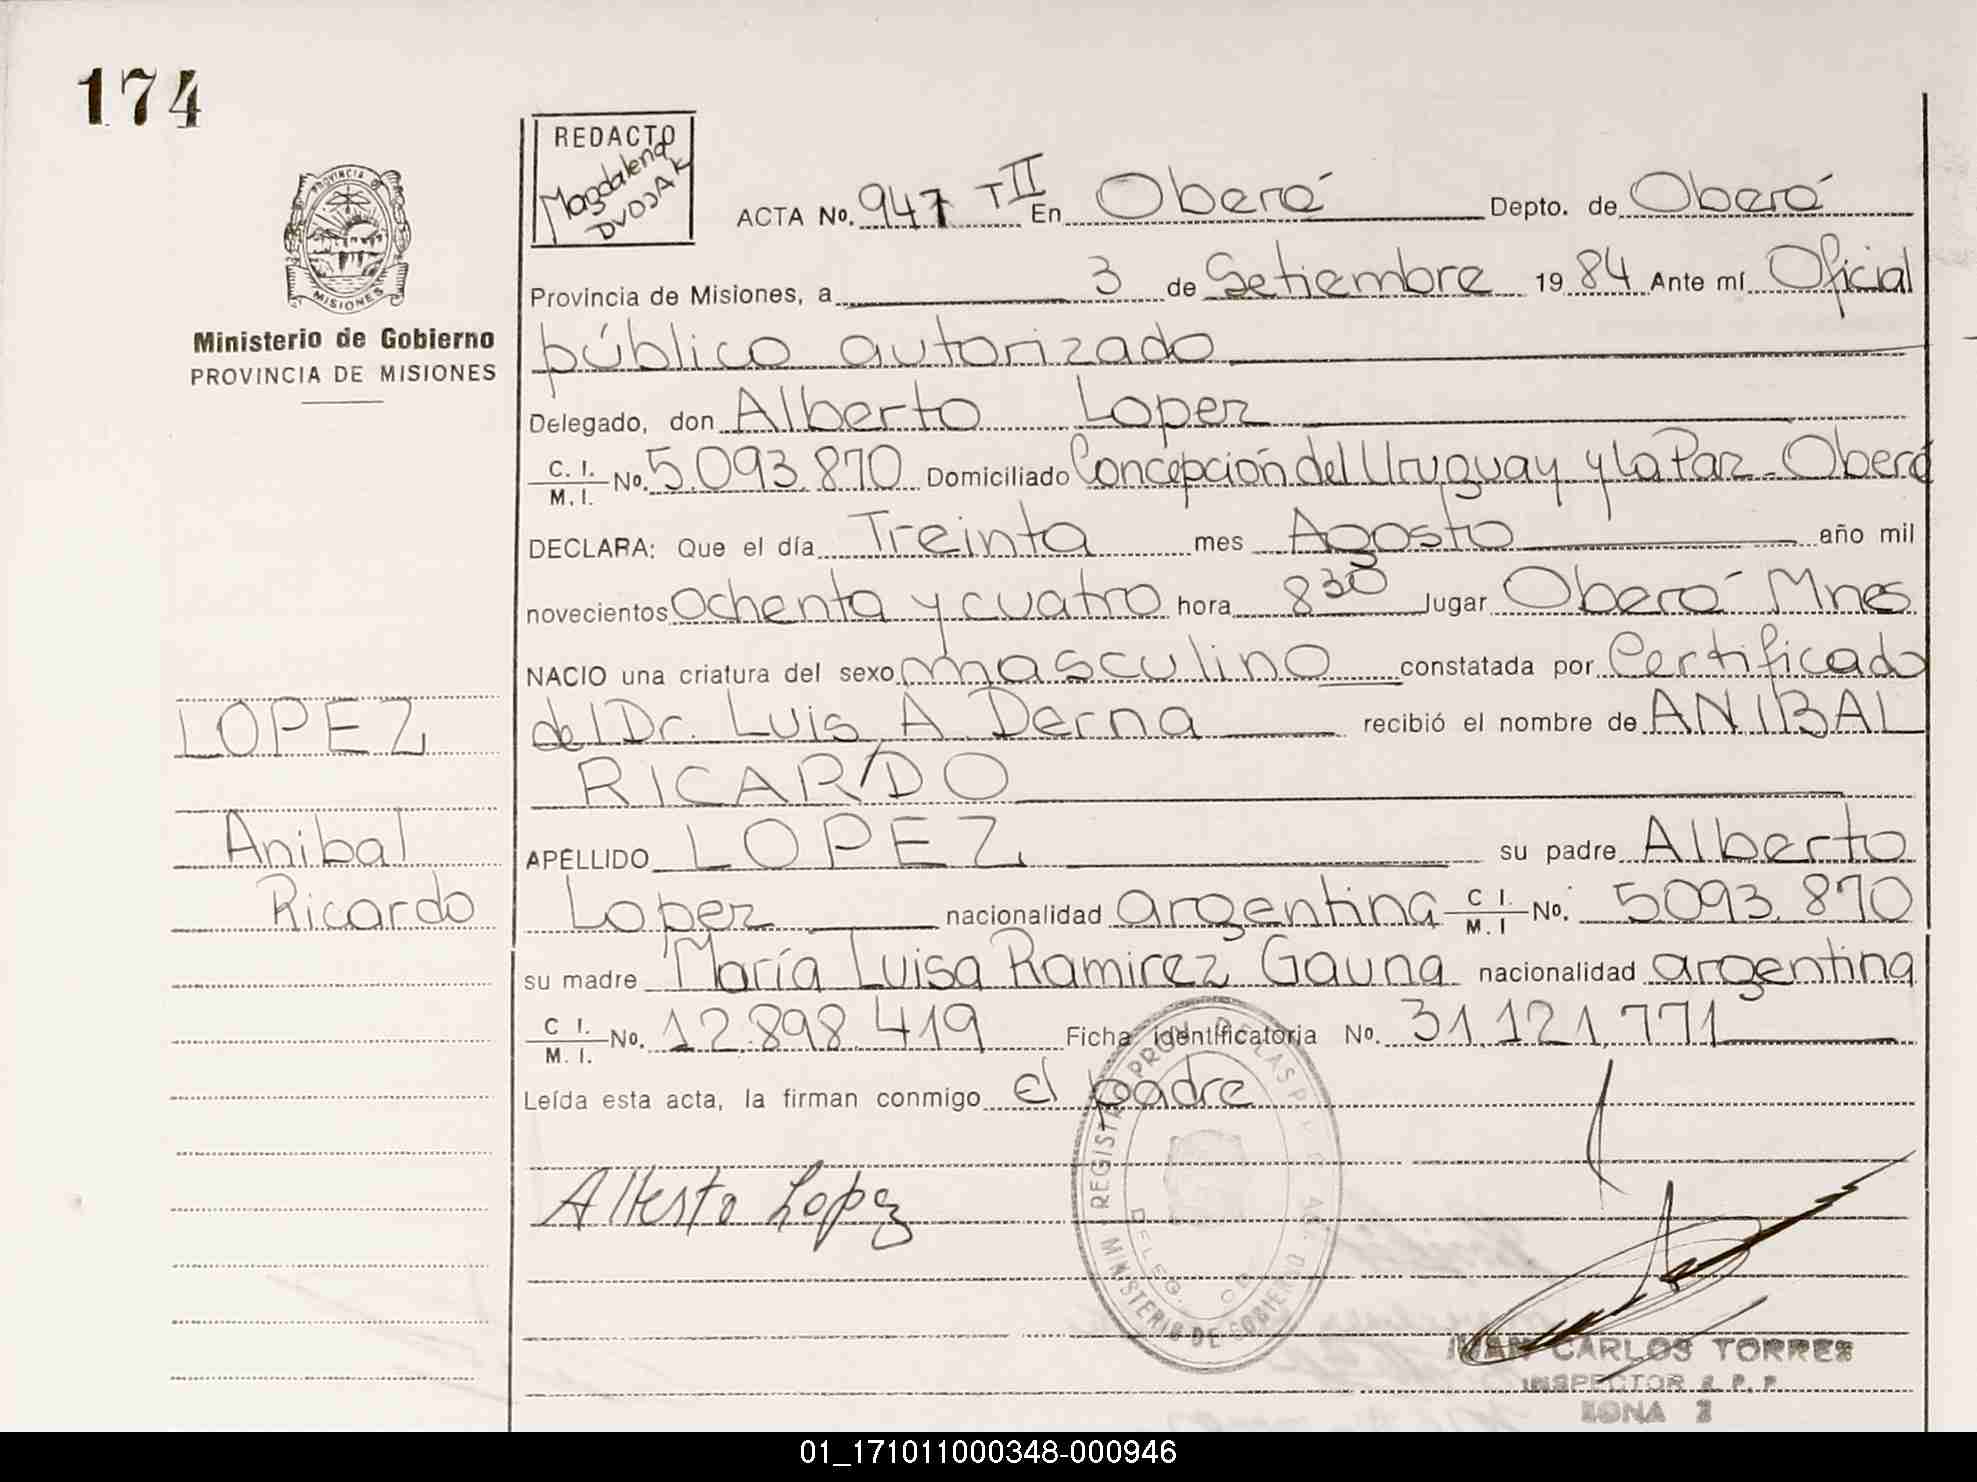 174
REDACTO
Magdalena
DUDJAK
PROVINCIA DE
MISIONES
Ministerio de Gobierno
PROVINCIA DE MISIONES
ACTA No. 947 T II En Oberá Depto. de Oberá
Provincia de Misiones, a 3 de Setiembre 19 84 Ante mí Oficial
público autorizado
Delegado, don Alberto Lopez
C. I. / M. I. No. 5.093.870 Domiciliado Concepción del Uruguay y La Paz - Oberá
DECLARA: Que el día Treinta mes Agosto año mil
novecientos Ochenta y cuatro hora 8 30 lugar Oberá Mnes
NACIO una criatura del sexo masculino constatada por Certificado
del Dr. Luis A Derna recibió el nombre de ANIBAL
RICARDO
APELLIDO LOPEZ su padre Alberto
Lopez nacionalidad argentina C I. / M. I No. 5093.870
su madre María Luisa Ramirez Gauna nacionalidad argentina
C I. / M. I. No. 12.898.419 Ficha identificatoria No. 31.121.771
Leída esta acta, la firman conmigo el padre
LOPEZ
Anibal
Ricardo
Alberto Lopez
MINISTERIO DE GOBIERNO
JUAN CARLOS TORRES
INSPECTOR R. P. P.
ZONA 2
01_171011000348-000946